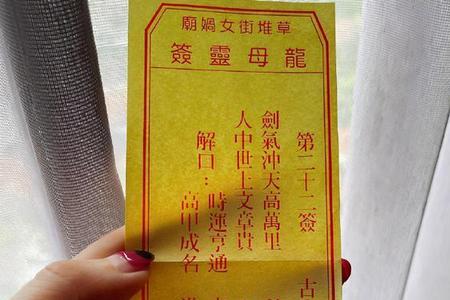 草堆街女媧廟
龍母靈簽
第二十二簽 古
劍氣沖天高萬里
人中世上文章貴
解曰：時運亨通
高甲成名